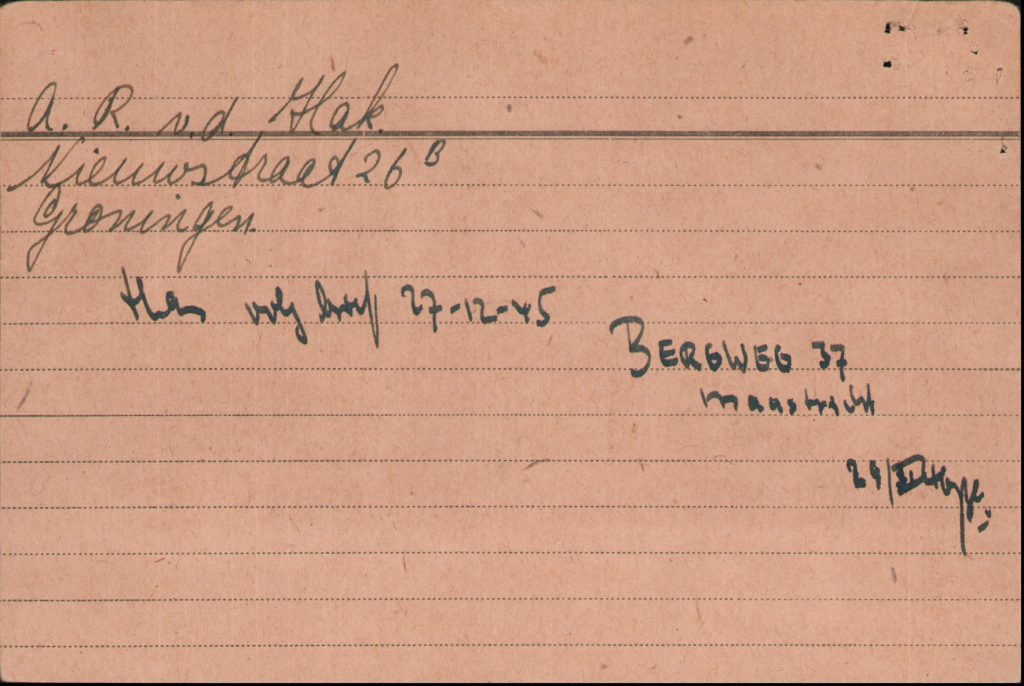 A. R. v.d. Hak.
Nieuwstraat 26 B
Groningen.
volg brief 27-12-45
BERGWEG 37
Maastricht